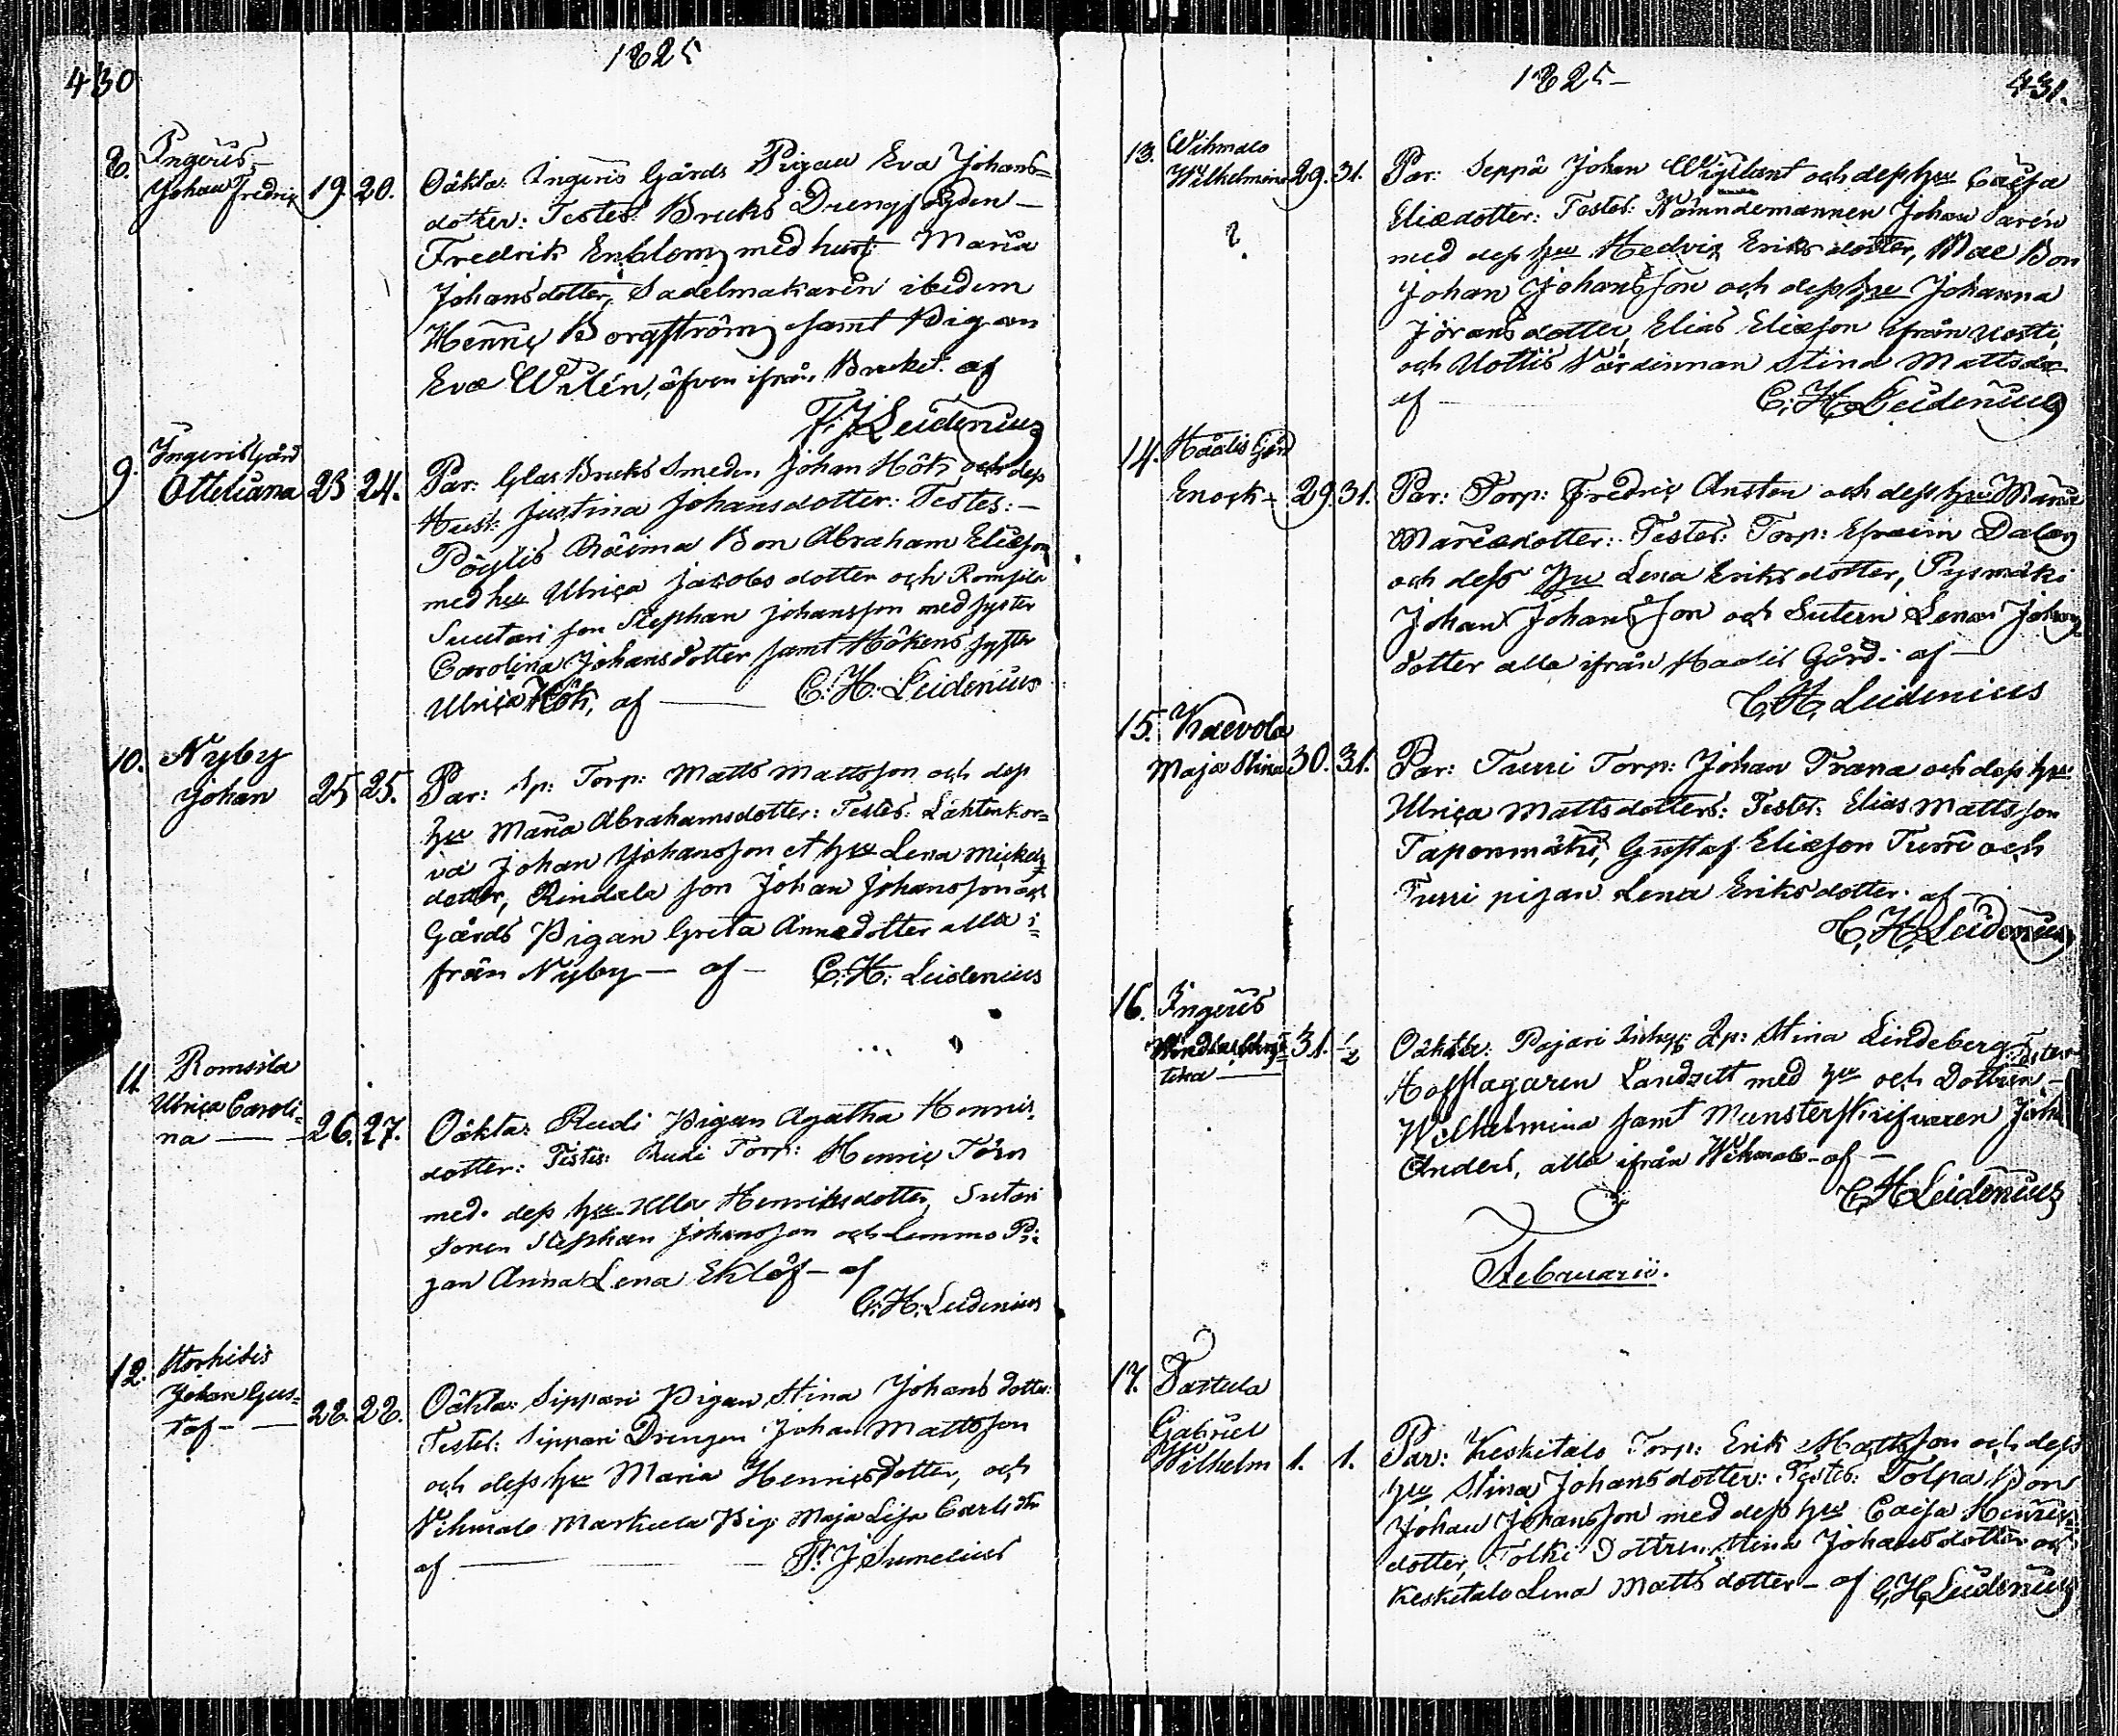 430
1825
8. Ingeris
Johan Fredric 19. 20.
Oäkta: Ingeris Gårds Pigan Eva Johans=
dotter: Testes: Bruks Drengfogden
Fredrik Enblom med hust: Maria
Johansdotter, Sadelmakaren ibidem
Henric Borgström samt Pigan
Eva Wilén, äfven ifrån Bruket. af
F. J. Leidenius
9. Ingeris Gård
Otteliana 23 24.
Par: Glas Bruks Smeden Johan Hök och dess
Hust: Justina Johansdotter: Testes: —
Bon Abraham Eliæson
med hu Ulrica Jacobs dotter och Romsila
Sutari son Stephan Johansson med syster
Carolina Johansdotter samt Hökens syster
Ulrica Hök, af — C. H. Leidenius
10. Nyby
Johan 25 25.
Par: Sp: Torp: Matts Mattsson och dess
hu Maria Abrahamsdotter: Testes: Lahtenkor=
va Johan Johansson et hu Lena Mickels
dotter, Rindala son Johan Johansson och
Gårds Pigan Greta Annædotter alla i=
från Nyby — af — C. H. Leidenius
11. Romsila
Ulrica Caroli-
na — 26. 27.
Oäkta: Rudi Pigan Agatha Henrics
dotter: Testes: Rudi Torp: Henric Törn
med dess hu Ulla Henriksdotter, Sutari
Sonen Stephan Johansson och Lemmo Pi=
gan Anna Lena Eklöf — af
C. H. Leidenius
12. Storhitis
Johan Gus=
taf — 28. 28.
Oäkta: Sippari Pigan Stina Johans dotter:
Testes: Sippari Drengen Johan Mattsson
och dess hu Maria Henricsdotter, och
Vihmalo Markula Pig: Maja Lisa Carls dtr
af — P. J. Sumelius
1825 —
431.
13. Wihmalo
Wilhelmina 29. 31.
?
Par: Seppä Johan Wigilant och dess hu Caisa
Eliædotter: Testes: Nämndemannen Johan Sarén
med dess hu Hedvig Eriks dotter, Bon
Johan Johansson och dess hu Johanna
Jörans dotter, Elias Eliæson ifrån Uotti,
och Uottis Värdinnan Stina Mattsdr
af — C. H. Leidenius
14. Haalis Gård
Enock — 29. 31.
Par: Torp: Fredric Ansten och dess hu Maria
Mariædotter: Testes: Torp: Efraim Dalen
och dess hu Lena Eriks dotter, Pysmäki
Johan Johansson och Suteri Lena Johans
dotter alla ifrån Haalis Gård. af —
C. H. Leidenius
15. Kaevola
Maja Stina 30. 31.
Par: Turri Torp: Johan Trana och dess hu
Ulrica Mattsdotter: Testes: Elias Mattsson
Taponmäki, Gustaf Eliæson Turri och
Turri pigan Lena Eriks dotter. af —
C. H. Leidenius
16. Ingeris
31. ½
Oäkta: Pajari Stina Lindeberg: Testes
Hofslagaren Landzett med hu och Dottren —
Wilhelmina samt Munsterskrifvaren Joh:
Anders, alla ifrån Wihmalo — af —
C. H. Leidenius
Februarii.
17. Tastula
Gabriel
Wilhelm 1. 1.
Par: Keskitalo Torp: Erik Mattsson och dess
hu Stina Johansdotter: Testes: Tolpa Bon
Johan Johansson med dess hu Caisa Henrics
dotter, Tolki Dottren Stina Johansdotter och
Keskitalo Lena Matts dotter — af C. H. Leidenius